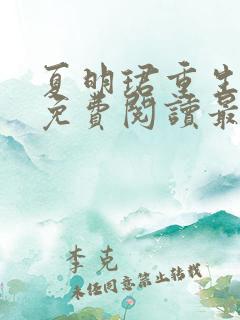 夏明珺重生
免費閱讀最
李克
未经同意禁止转载